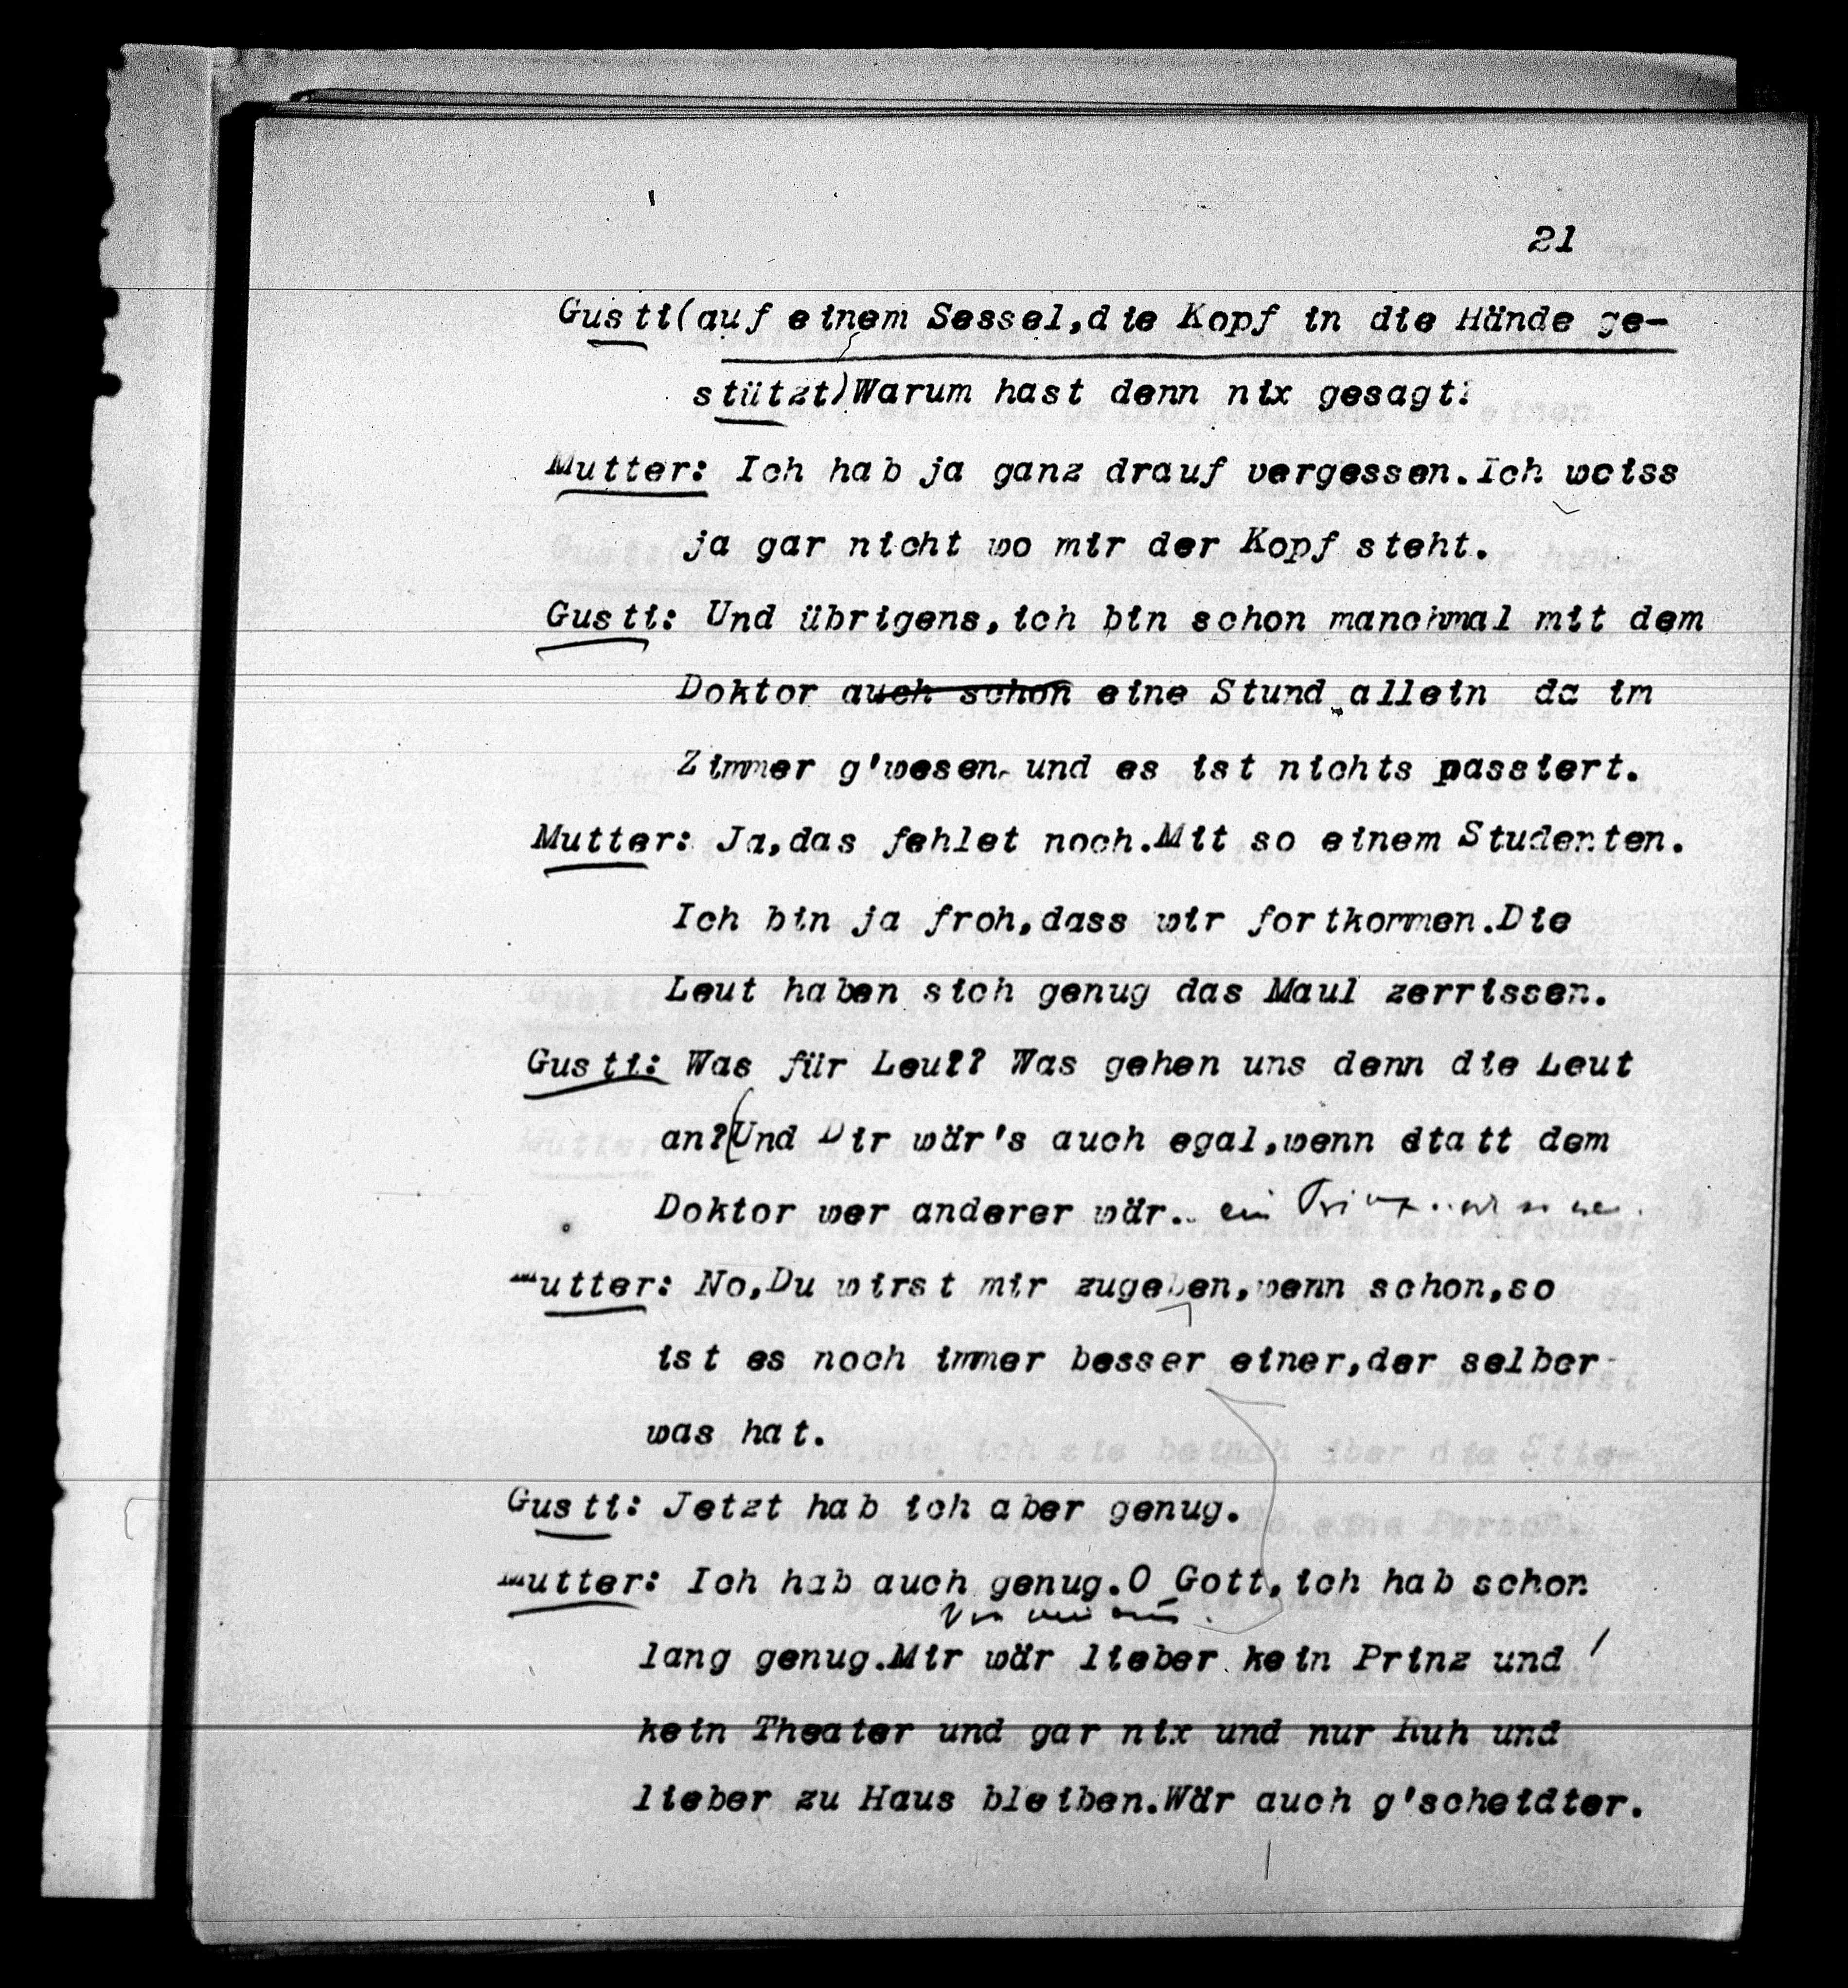 21
Gusti(auf einem Sessel,die Kopf in die Hände ge-
stützt)Warum hast denn nix gesagt?
Mutter: Ich hab ja ganz drauf vergessen.Ich weiss
ja gar nicht wo mir der Kopf steht.
Gusti: Und übrigens,ich bin schon manchmal mit dem
Doktor auch schon eine Stund allein da im
Zimmer g'wesen und es ist nichts passiert.
Mutter: Ja,das fehlet noch.Mit so einem Studenten.
Ich bin ja froh,dass wir fortkommen.Die
Leut haben sich genug das Maul zerrissen.
Gusti: Was für Leut? Was gehen uns denn die Leut
an?(Und Dir wär's auch egal,wenn statt dem
Doktor wer anderer wär.. ein
Mutter: No,Du wirst mir zugeben,wenn schon,so
ist es noch immer besser einer,der selber
was hat.
Gusti: Jetzt hab ich aber genug.
Mutter: Ich hab auch genug.O Gott,ich hab schon
lang genug.Mir wär lieber kein Prinz und
kein Theater und gar nix und nur Ruh und
lieber zu Haus bleiben.Wär auch g'scheidter.